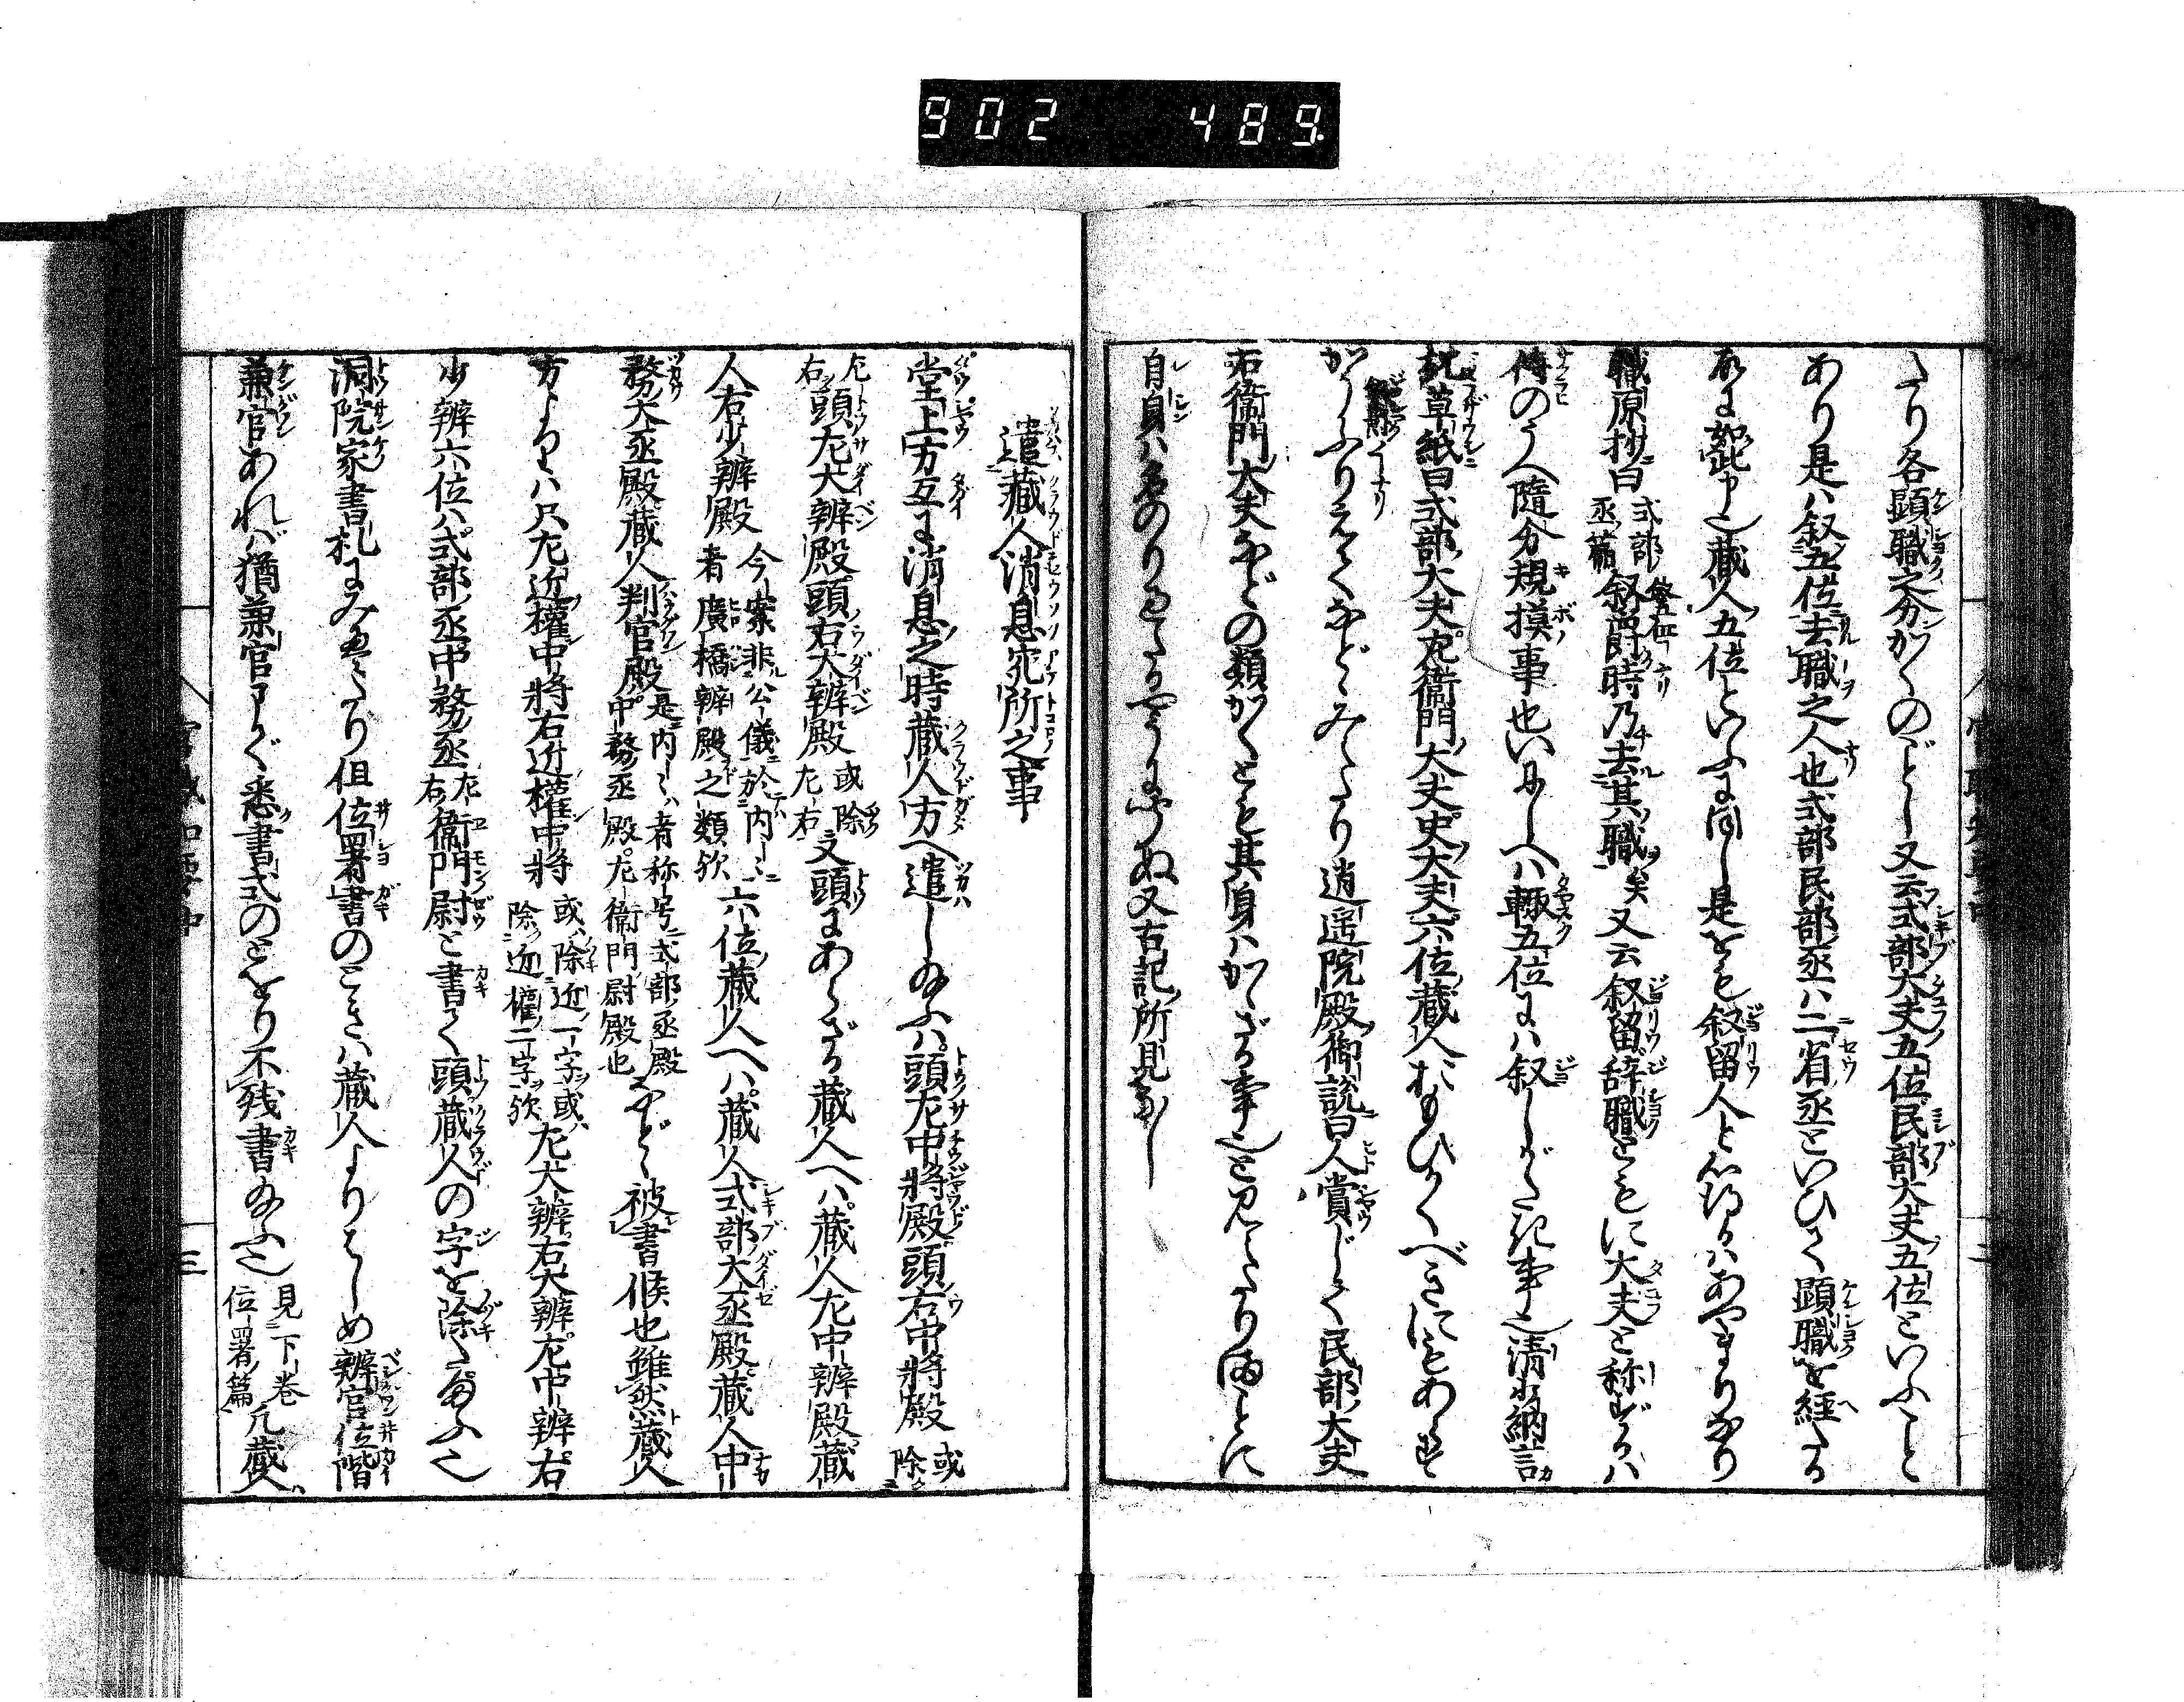 902 489.
たり各顕職之分かくのごとし又云式部大夫五位民部大夫五位といふこと
あり是ハ叙五位去職之人也式部民部丞ハ二省丞といひて顕職を経たる
故に如此申也蔵人五位といふに同し是をも叙留人と心得るハあやまりなり
職原抄曰式部丞篇叙爵時乃去其職矣又云叙留辞職ともに大夫と称するハ
侍のうへ随分規摸事也いにしへハ輙五位にハ叙しがたき事也清少納言
枕草紙曰式部大夫左衛門大夫史大夫六位蔵人おもひかくべきにもあらず
かうふりえてなどゝみえたり逍遥院殿御説曰人賞じて民部大夫
右衛門大夫などの類かくとも其身ハかゝざる事也と見えたりまことに
自身ハ名のりたるやうにきかぬ又古記所見なし
遣蔵人消息宛所之事
堂上方互に消息之時蔵人方へ遣し給ふハ頭左中将殿頭右中将殿 或除
左右 頭左大辨殿頭右大辨殿 或除左右 又頭にあらざる蔵人へハ蔵人左中辨殿蔵
人右少辨殿 今案非公儀於内ゝ者廣橋辨殿之類欤 六位蔵人へハ蔵人式部大丞殿蔵人中
務大丞殿蔵人判官殿 是内ゝハ者称号式部丞殿中務丞殿左衛門尉殿也 など被書候也雖然蔵人
方よりハ只左近権中将右近権中将 或ハ除近一字或ハ除近権二字欤 左大辨右大辨左中辨右
少辨六位ハ式部丞中務丞左右衛門尉と書て頭蔵人の字を除き給ふ也
洞院家書札にみえたり但位署書のときハ蔵人よりはしめ辨官位階
兼官あれバ猶兼官まで悉書式のとをり不残書給ふ也 見下巻位署篇 凡蔵人
三